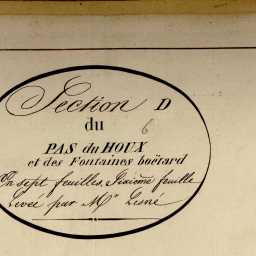 Section D
du
6
PAS du HOUX
et des Fontaines boërard
En sept feuilles, Sixième feuille
Levée par Mr Lesné